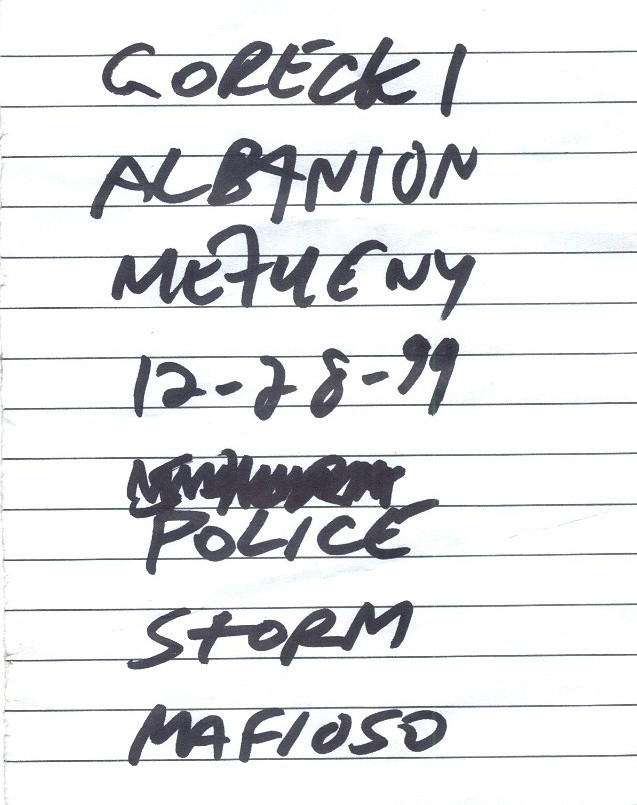 GORECKI
ALBANION
METHENY
12-28-99
POLICE
STORM
MAFIOSO